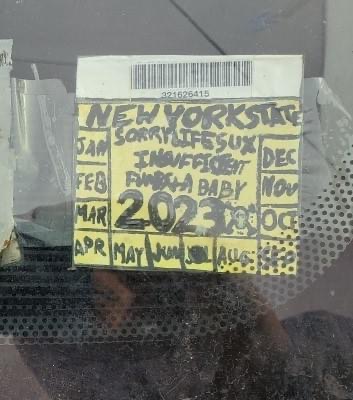 321626415
NEW YORK STATE
SORRY LIFE SUX
JAN DEC
INSUFFICENT
FEB FUNDS+A BABY NOV
MAR 2023 OCT
APR MAY JUN JUL AUG SEP